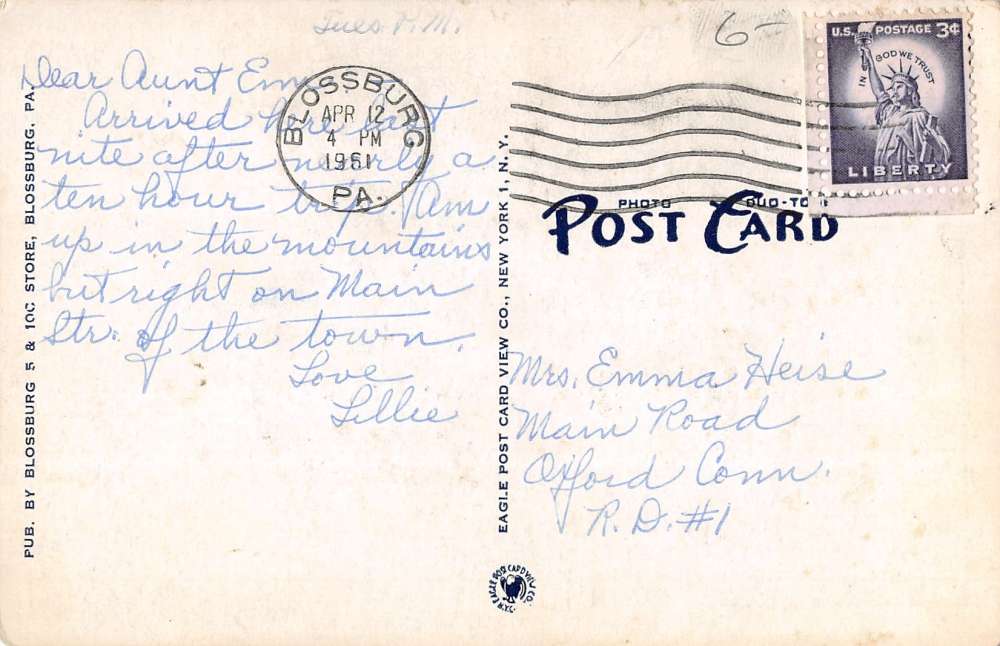 Tues P.M.
6-
Dear Aunt Em
Arrived here last
nite after nearly a
ten hour trip. Am
up in the mountains
but right on Main
Str. of the town.
Love
Lillie
BLOSSBURG
APR 12
4 PM
1961
PA.
U.S. POSTAGE 3¢
IN GOD WE TRUST
LIBERTY
PHOTO DUO-TONE
POST CARD
Mrs. Emma Heise
Main Road
Oxford Conn.
R.D. #1
PUB. BY BLOSSBURG 5 & 10C STORE, BLOSSBURG, PA.
EAGLE POST CARD VIEW CO., NEW YORK 1, N. Y.
EAGLE POST CARD VIEW CO.
N.Y.C.